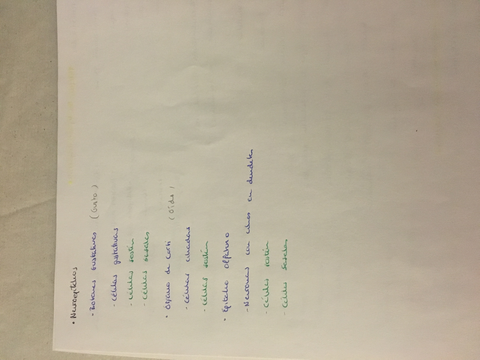 • Neuroepitelios
- Botones gustativos (Gusto)
- células gustativas
- células sostén
- células basales
• Órgano de Corti (Oído)
- Células ciliadas
- células sostén
• Epitelio olfatorio
- Neuronas con cilios en dendritas
- Células sostén
- Células basales